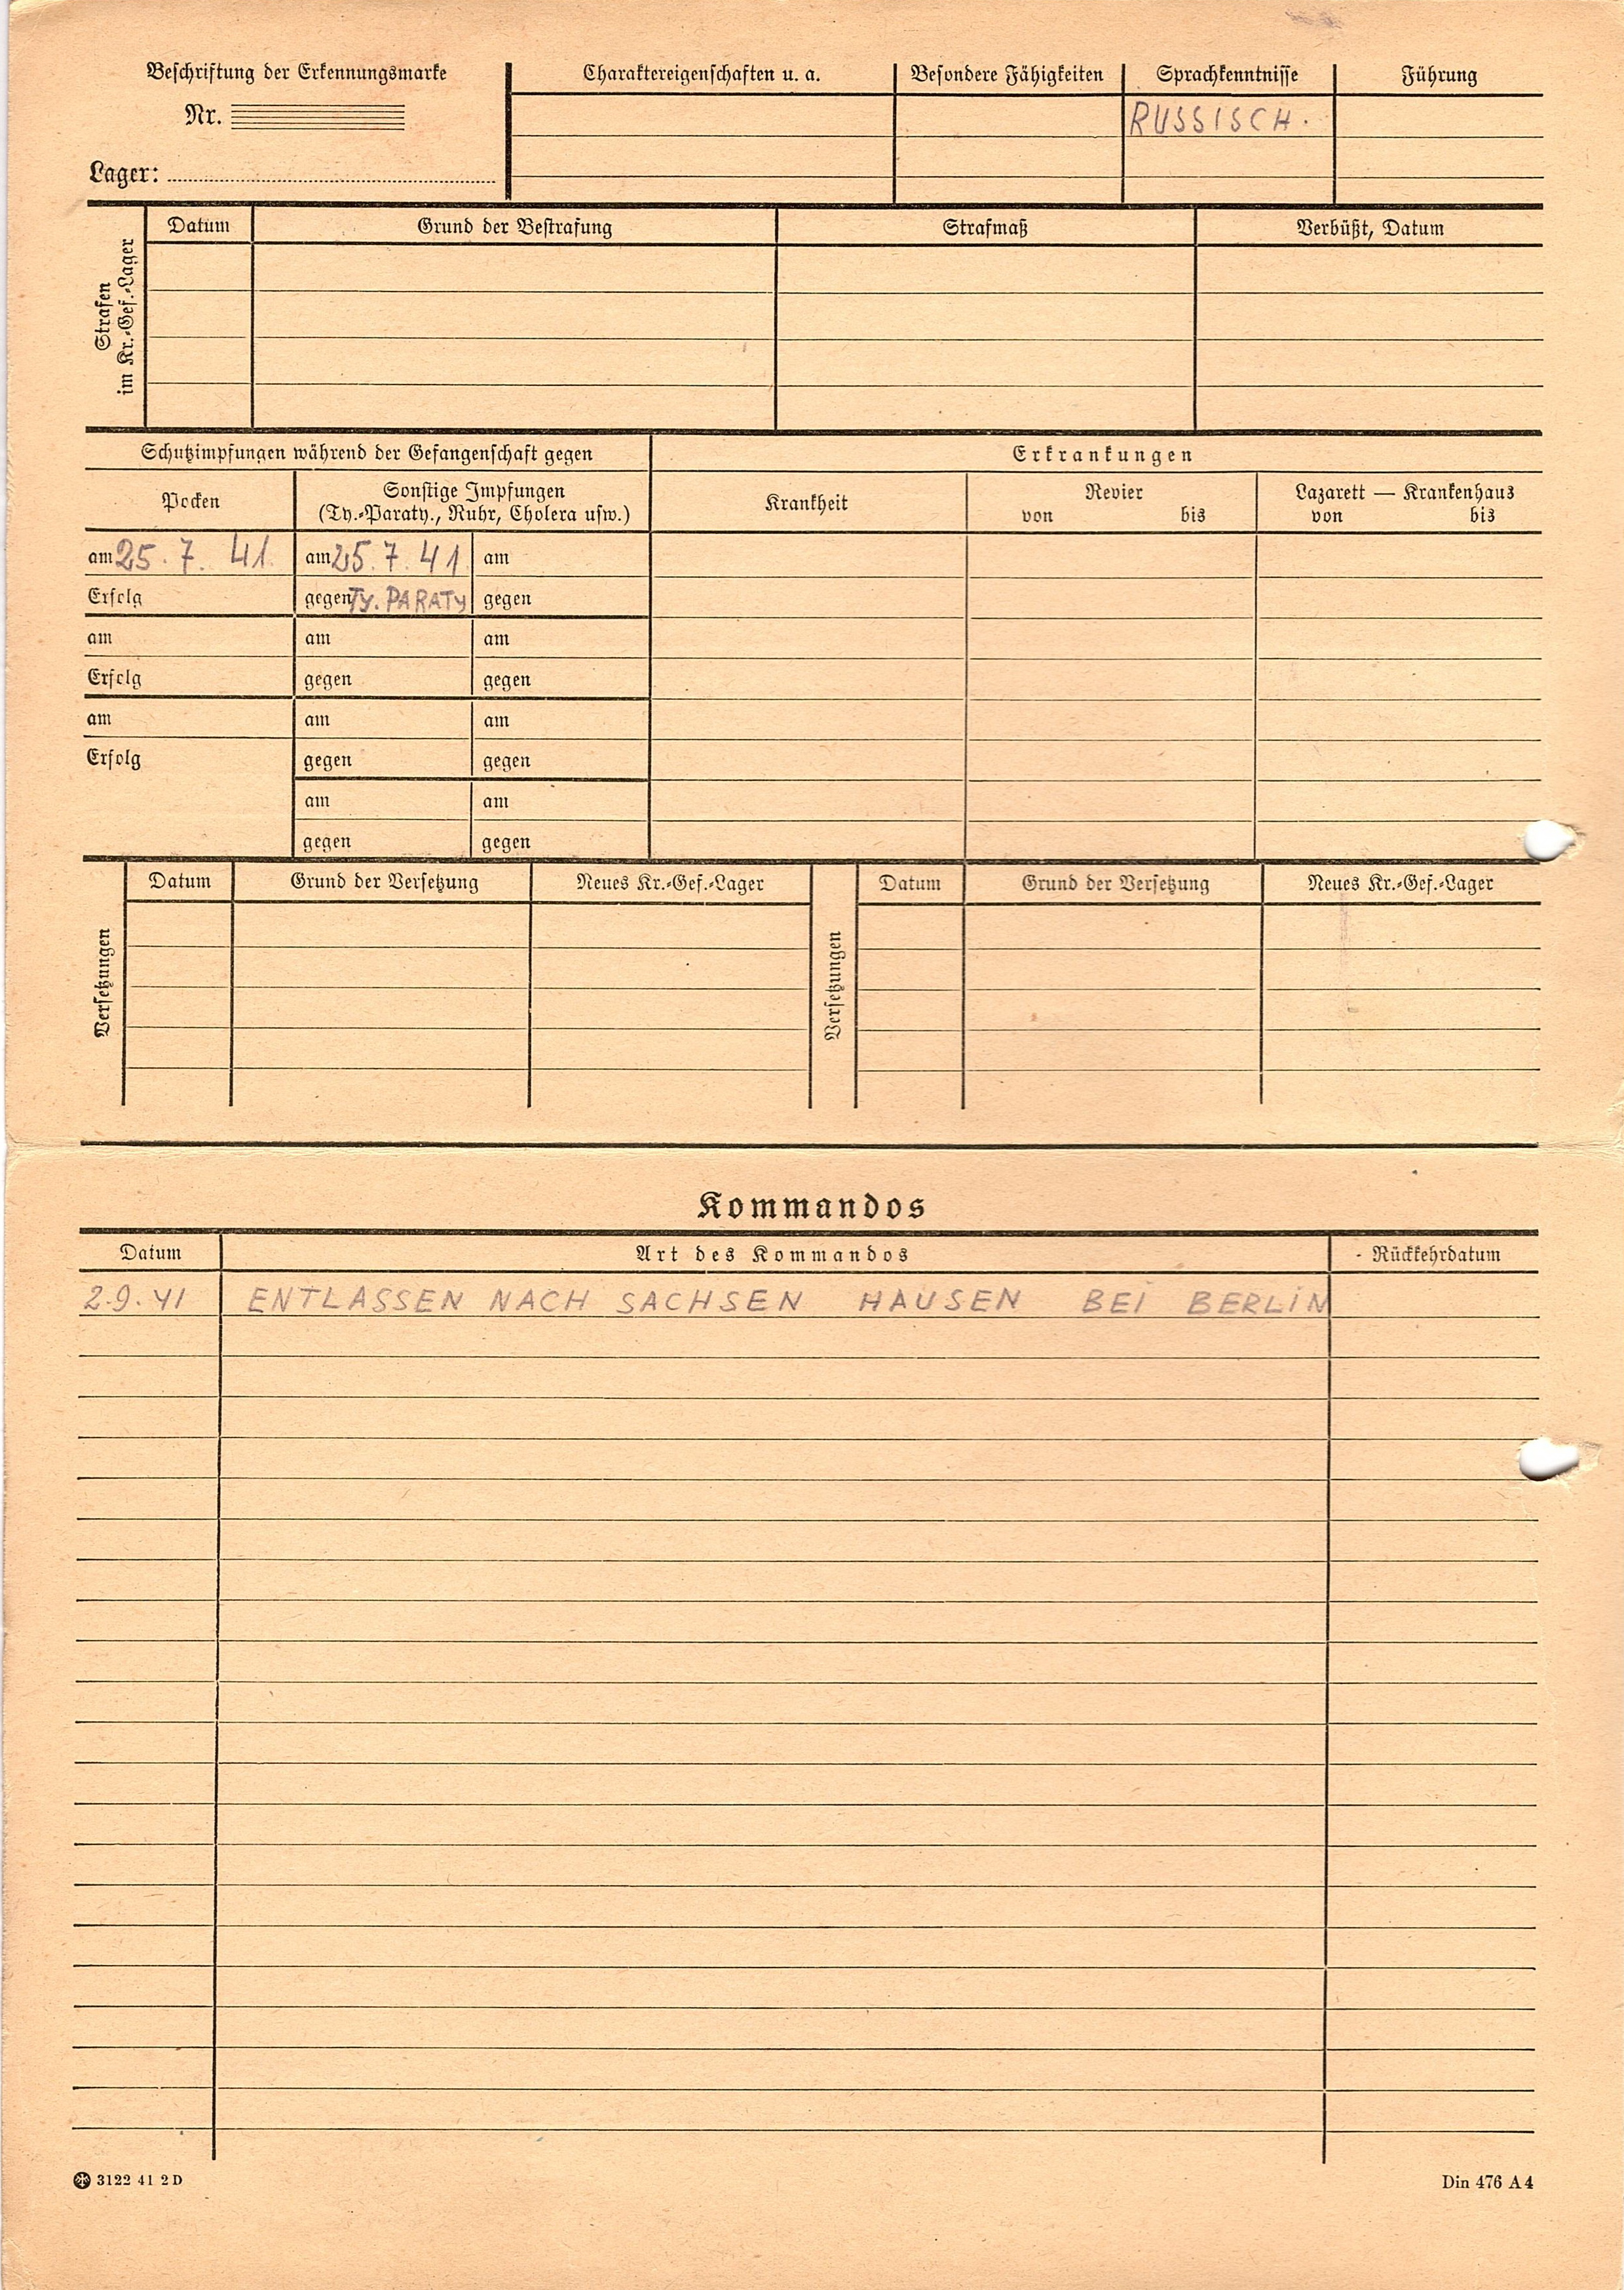 Beschriftung der Erkennungsmarke
Nr.
Lager:
Charaktereigenschaften u. a.
Besondere Fähigkeiten
Sprachkenntnisse
Führung
RUSSISCH.
Strafen
im Kr.-Gef.-Lager
Datum
Grund der Bestrafung
Strafmaß
Verbüßt, Datum
Schutzimpfungen während der Gefangenschaft gegen
Erkrankungen
Pocken
Sonstige Impfungen
(Ty.-Paraty., Ruhr, Cholera usw.)
Krankheit
Revier
von bis
Lazarett — Krankenhaus
von bis
am 25. 7. 41. am 25. 7. 41 am
Erfolg gegen TY. PARATY gegen
am am am
Erfolg gegen gegen
am am am
Erfolg gegen gegen
am am
gegen gegen
Versetzungen
Datum
Grund der Versetzung
Neues Kr.-Gef.-Lager
Versetzungen
Datum
Grund der Versetzung
Neues Kr.-Gef.-Lager
Kommandos
Datum Art des Kommandos Rückkehrdatum
2.9.41 ENTLASSEN NACH SACHSEN HAUSEN BEI BERLIN
3122 41 2 D
Din 476 A 4